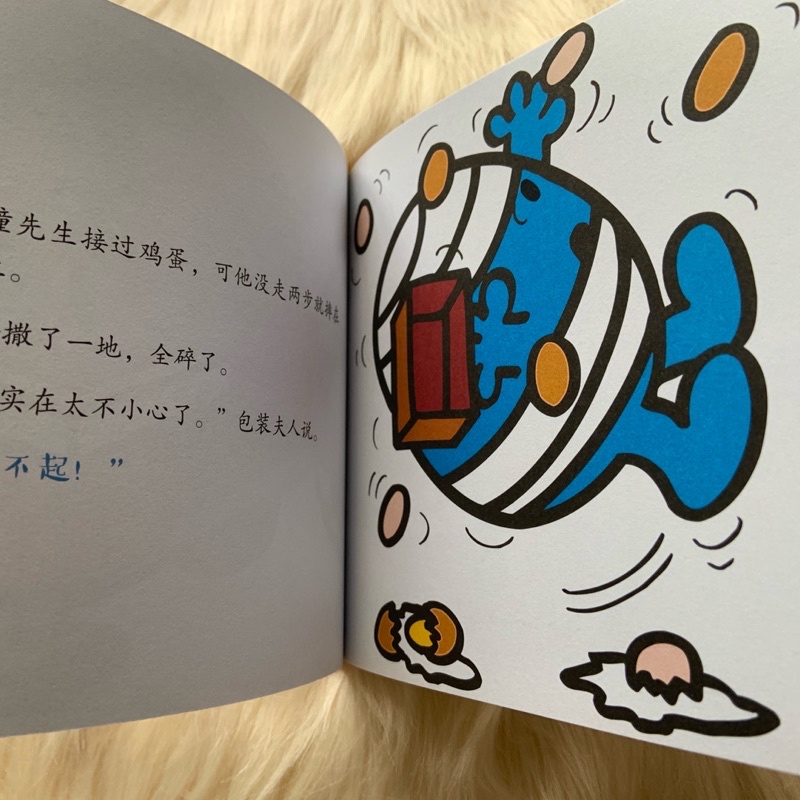 先生接过鸡蛋，可他没走两步就摔在
。
撒了一地，全碎了。
实在太不小心了。”包装夫人说。
不起！”